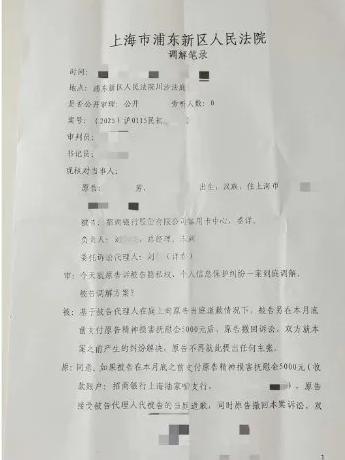 上海市浦东新区人民法院
调解笔录
时间:
地点: 浦东新区人民法院川沙法庭
是否公开审理: 公开 旁听人数: 0
案号: (2025) 沪0115民初
审判员:
书记员:
现核对当事人:
原告: 男, 出生, 汉族, 住上海市
被告: 招商银行股份有限公司信用卡中心, 委详。
负责人: 刘 总经理,
委托诉讼代理人: 刘
审: 今天就原告诉被告隐私权、个人信息保护纠纷一案到庭调解。
被告调解方案?
被: 基于被告代理人在庭上向原告当庭道歉情况下, 被告另在本月底
前支付原告精神损害抚慰金5000元后, 原告撤回诉讼, 双方就本
案之前产生的纠纷解决, 原告不再就此提出任何主张。
原: 同意, 如果被告在本月底之前支付原告精神损害抚慰金5000元 (收
款账户: 招商银行上海陆家嘴支行, ), 原告
接受被告代理人代被告的当庭道歉, 同时原告撤回本案诉讼, 双
1